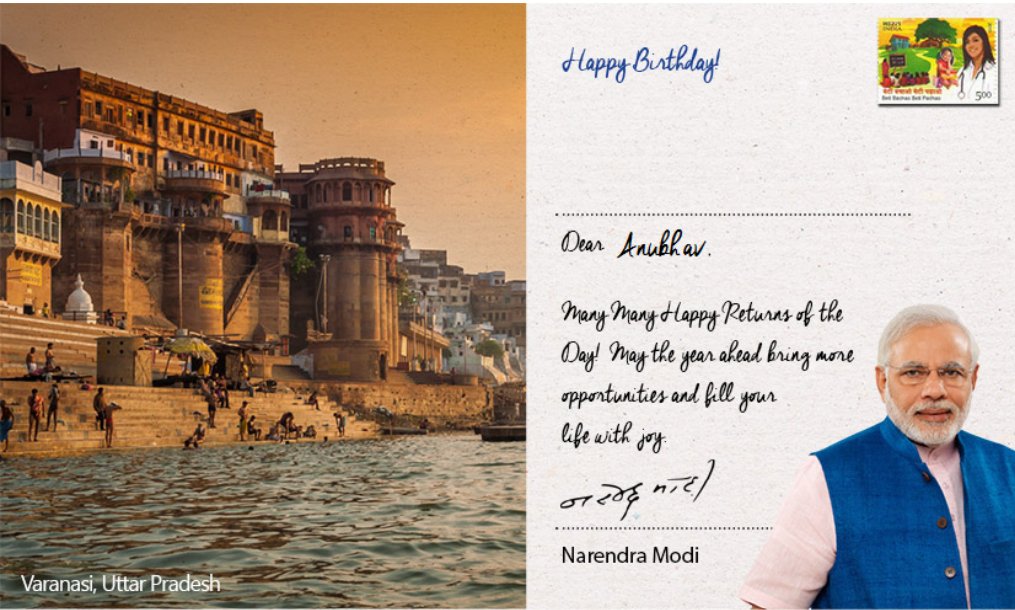 Happy Birthday!
INDIA
बेटी बचाओ बेटी पढ़ाओ
Beti Bachao Beti Padhao
5.00
Dear Anubhav.
Many Many Happy Returns of the
Day! May the year ahead bring more
opportunities and fill your
life with joy.
नरेन्द्र मोदी
Narendra Modi
Varanasi, Uttar Pradesh